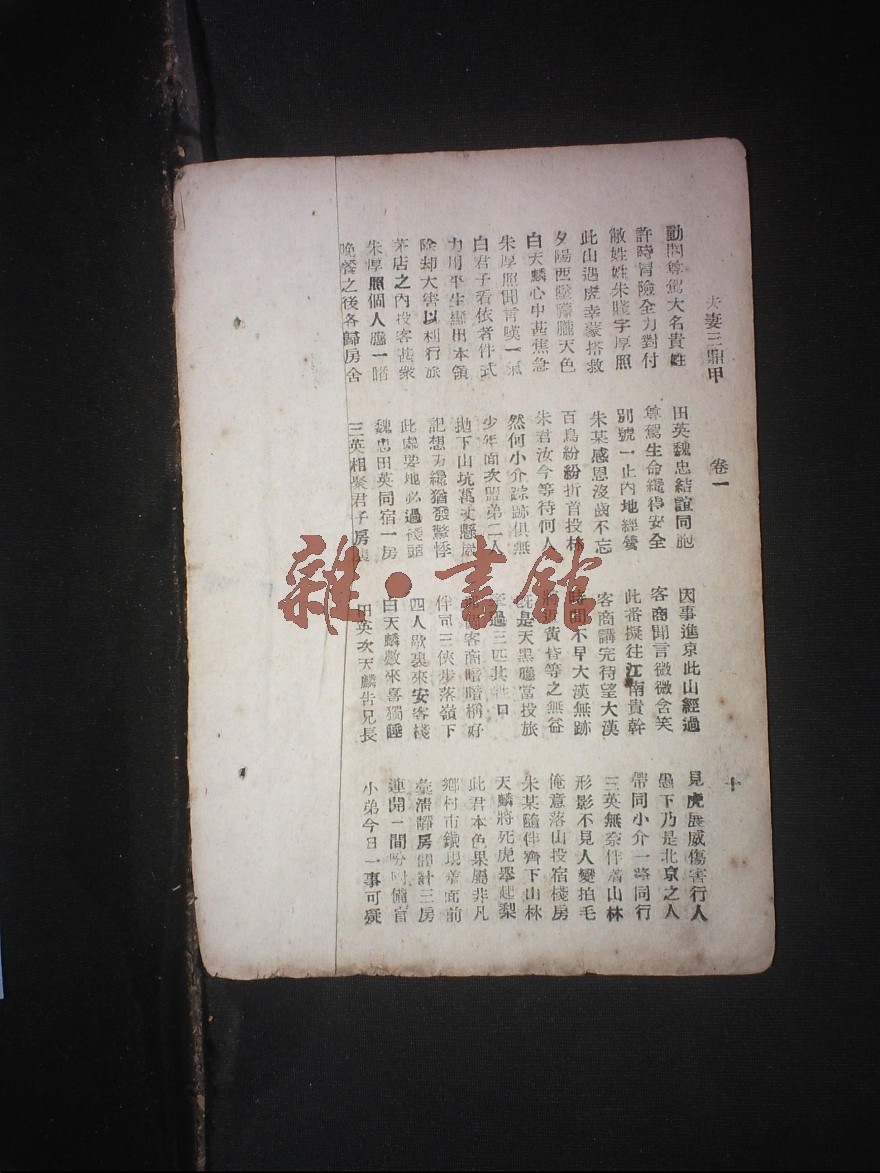 夫妻三鼎甲 卷一 十
動問尊駕大名貴姓 田英魏忠結誼同胞 因事進京此山經過 見虎展威傷害行人
許時冒險全力對付 尊駕生命纔得安全 客商聞言微微含笑 愚下乃是北京之人
敝姓姓朱賤字厚照 別號一止內地經營 此番擬往江南貴幹 帶同小介一路同行
此山遇虎幸蒙搭救 朱某感恩沒齒不忘 客商講完待望大漢 三英無奈伴着山林
夕陽西墜朦朧天色 百鳥紛紛折首投林 時間不早大漢無跡 形影不見人變拍毛
白天麟心中甚焦急 朱君汝今等待何人 黃昏等之無益 俺意落山投宿棧房
朱厚照聞言嘆一氣 然何小介踪跡俱無 是天黑應當投旅 朱某隨伴齊下山林
白君子看依者件式 少年面次盟弟二人 過三匹其牲口 天麟將死虎舉起梨
力用平生顯出本領 拋下山坑萬丈懸崖 客商暗暗稱好 此君本色果屬非凡
除却大害以利行旅 記想方纔猶發驚悸 伴同三俠步落嶺下 鄉村市鎮現着面前
茅店之內投客甚衆 此處要地必過橋頭 四人歇裏來安客棧 臺清靜房間計三房
朱厚照個人應一間 魏忠田英同宿一房 白天麟歡來喜獨睡 連開一間吩咐備膏
晚餐之後各歸房舍 三英相聚君子房裏 田英次天麟告兄長 小弟今日一事可疑
雜·書館